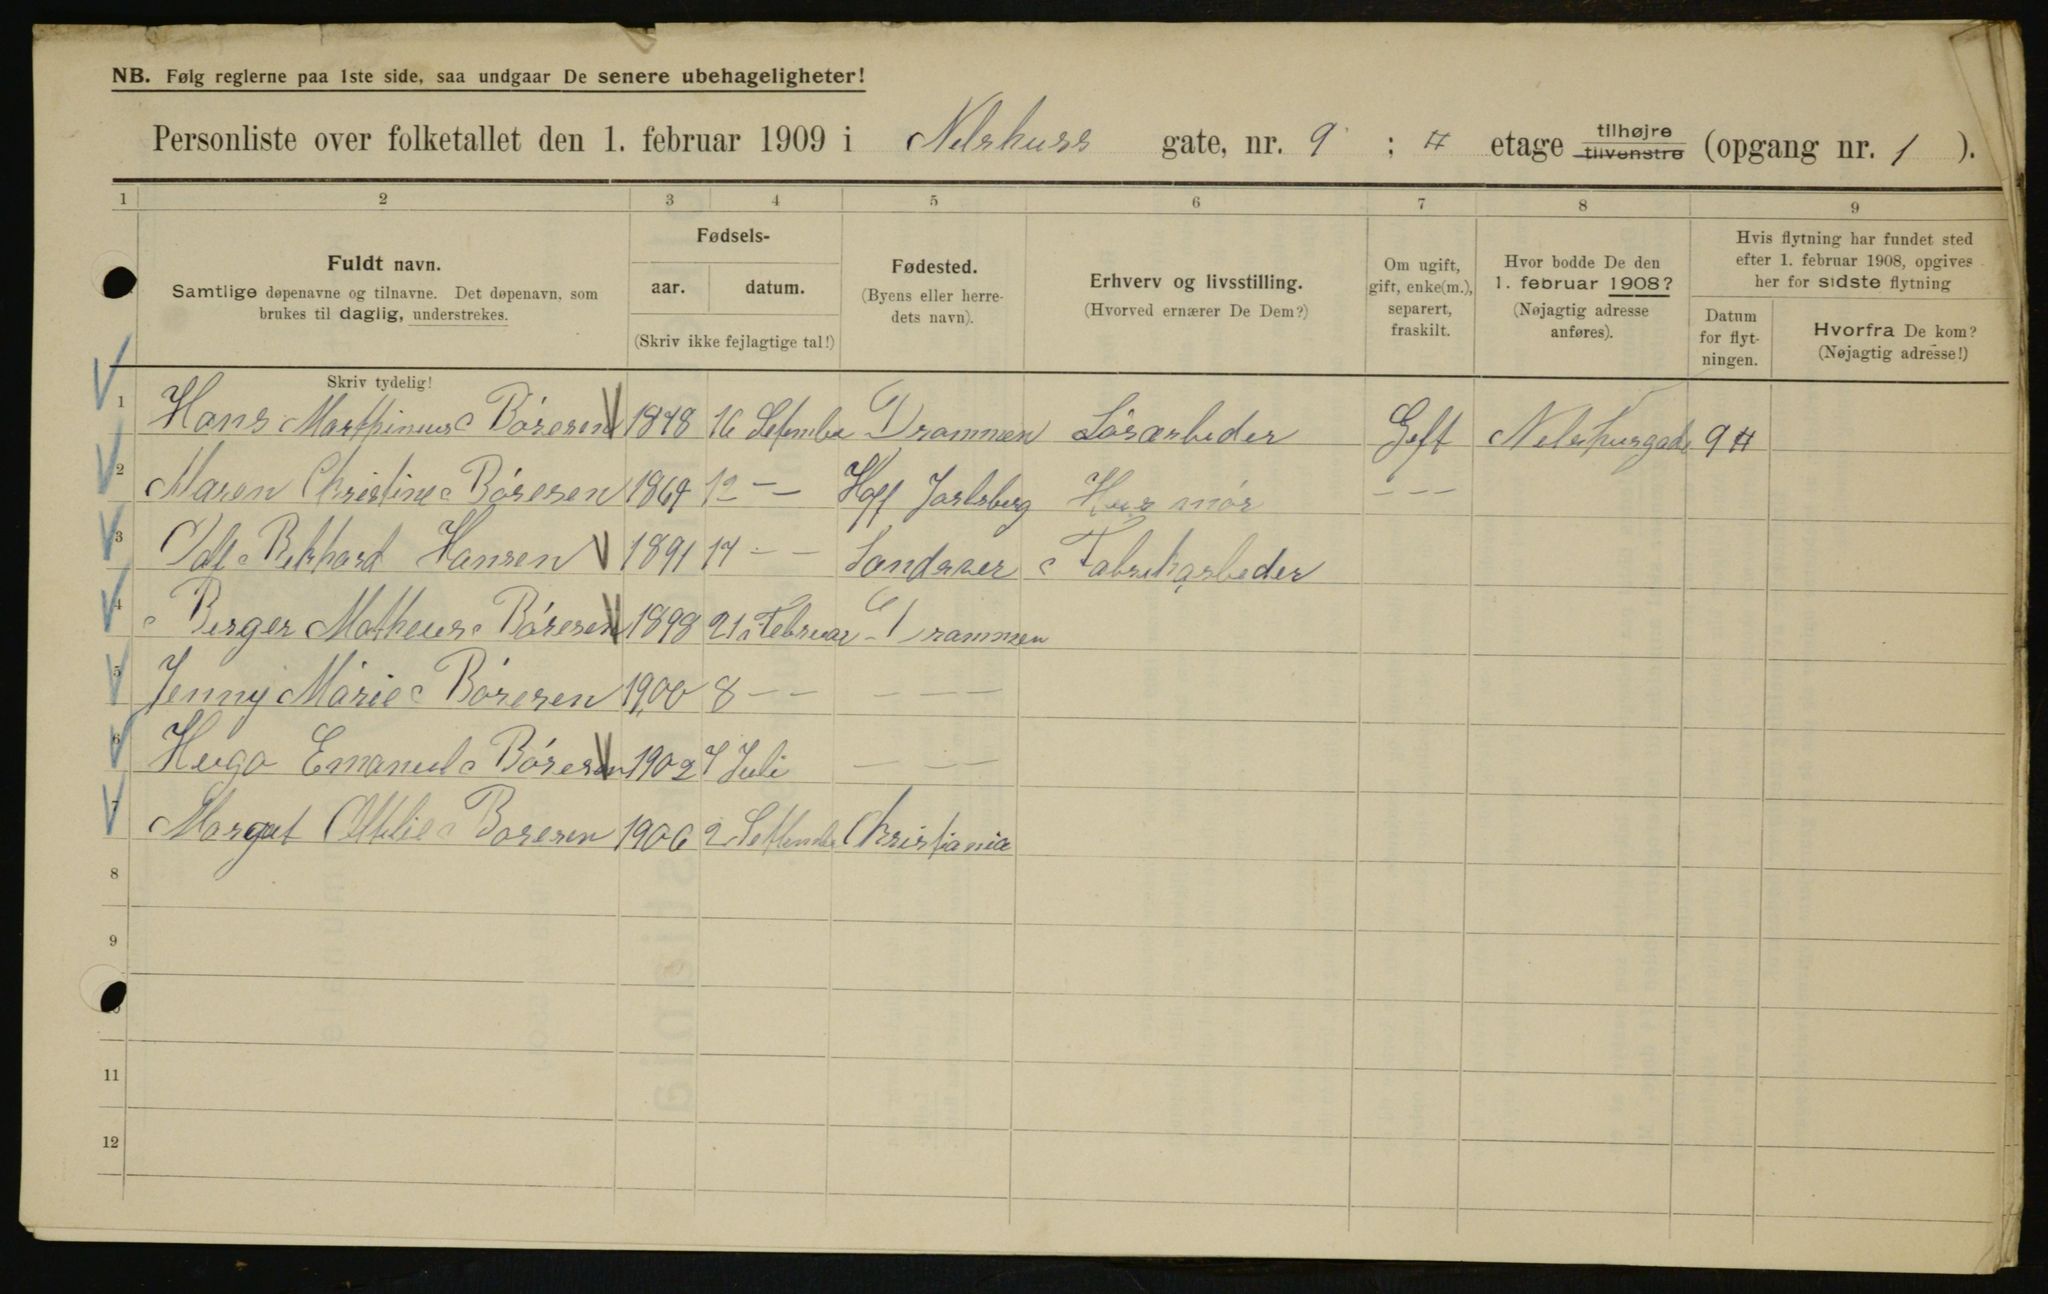 NB. Følg reglerne paa 1ste side, saa undgaar De senere ubehageligheter!
Personliste over folketallet den 1. februar 1909 i Nelshuss gate, nr. 9 ; 4 etage tilhøjre tilvenstre (opgang nr. 1 ).
1 2 3 4 5 6 7 8 9
Fuldt navn.
Samtlige døpenavne og tilnavne. Det døpenavn, som
brukes til daglig, understrekes.
Skriv tydelig!
Fødsels-
aar. datum.
(Skriv ikke fejlagtige tal!)
Fødested.
(Byens eller herre-
dets navn).
Erhverv og livsstilling.
(Hvorved ernærer De Dem?)
Om ugift,
gift, enke(m.),
separert,
fraskilt.
Hvor bodde De den
1. februar 1908?
(Nøjagtig adresse
anføres).
Hvis flytning har fundet sted
efter 1. februar 1908, opgives
her for sidste flytning
Datum
for flyt-
ningen.
Hvorfra De kom?
(Nøjagtig adresse!)
1 Hans Marthinus Böresen 1848 16 Setember Drammen Lösarbeder Geft Nelshusgade 9 4
2 Maren Christine Böresen 1864 12 — — Hoff Jarlsberg Husmör — — —
3 Hansen 1891 14 — — Sandsver Fabrikarbeder
4 Birger Matheus Böresen 1898 21 Februar Drammen
5 Jenny Marie Böresen 1900 8 — — — — —
6 Hugo Emanuel Böresen 1902 7 Juli — — —
7 Margut Ottilie Boresen 1906 2 Settember Christiania
8
9
11
12